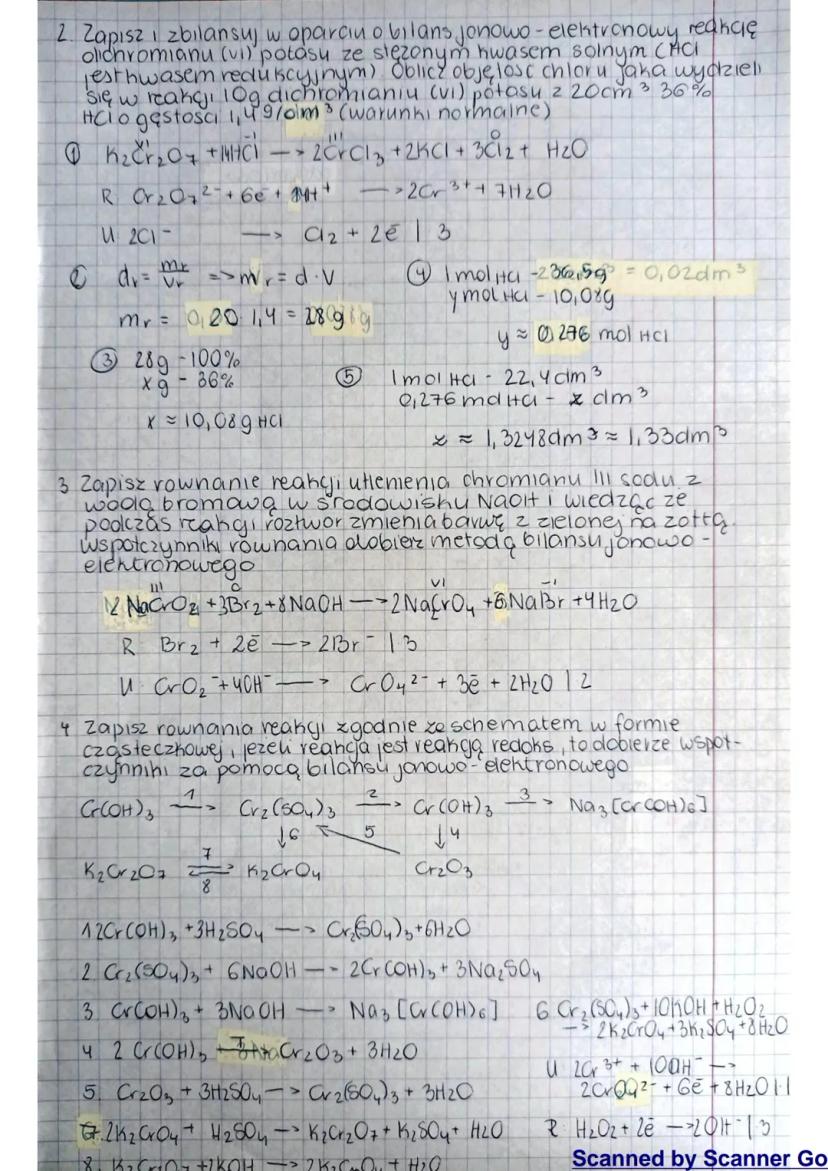 2. Zapisz i zbilansuj w oparciu o bilans jonowo-elektronowy reakcję
dichromianu (VI) potasu ze stężonym kwasem solnym (HCl
jest kwasem redukcyjnym) Oblicz objętość chloru jaka wydzieli
się w reakcji 10g dichromianiu (VI) potasu z 20cm³ 36%
HCl o gęstości 1,4g/dm³ (warunki normalne)
VI -I III 0
① K₂Cr₂O₇ + 14HCl —> 2CrCl₃ + 2KCl + 3Cl₂ + H₂O
R Cr₂O₇²⁻ + 6ē + 14H⁺ —> 2Cr³⁺ + 7H₂O
U 2Cl⁻ —> Cl₂ + 2ē | 3
② dᵣ = mᵣ/Vᵣ => mᵣ = d · V
mᵣ = 0,20 · 1,4 = 28g
③ 28g - 100%
x g - 36%
x ≈ 10,08g HCl
④ 1mol HCl - 36,5g = 0,02dm³
y mol HCl - 10,08g
y ≈ 0,276 mol HCl
⑤ 1mol HCl - 22,4dm³
0,276mol HCl - z dm³
z ≈ 1,3248dm³ ≈ 1,33dm³
3 Zapisz rownanie reakcji utlenienia chromianu III sodu z
wodą bromową w środowisku NaOH i wiedząc ze
podczas reakcji roztwor zmienia barwę z zielonej na zołtą.
Wspołczynniki rownania dobierz metodą bilansu jonowo-
elektronowego
III 0 VI -I
2 NaCrO₂ + 3Br₂ + 8NaOH —> 2Na₂CrO₄ + 6NaBr + 4H₂O
R Br₂ + 2ē —> 2Br⁻ | 3
U CrO₂⁻ + 4OH⁻ —> CrO₄²⁻ + 3ē + 2H₂O | 2
4 Zapisz rownania reakcji zgodnie ze schematem w formie
cząsteczkowej, jezeli reakcja jest reakcją redoks, to dobierze wspoł-
czynniki za pomocą bilansu jonowo-elektronowego
Cr(OH)₃ —1—> Cr₂(SO₄)₃ —2—> Cr(OH)₃ —3—> Na₃[Cr(OH)₆]
↓6 5 ↓4
K₂Cr₂O₇ 7⇌8 K₂CrO₄ Cr₂O₃
1 2Cr(OH)₃ + 3H₂SO₄ —> Cr₂(SO₄)₃ + 6H₂O
2 Cr₂(SO₄)₃ + 6NaOH —> 2Cr(OH)₃ + 3Na₂SO₄
3 Cr(OH)₃ + 3NaOH —> Na₃[Cr(OH)₆]
4 2 Cr(OH)₃ —T—> Cr₂O₃ + 3H₂O
5. Cr₂O₃ + 3H₂SO₄ —> Cr₂(SO₄)₃ + 3H₂O
7. 2K₂CrO₄ + H₂SO₄ —> K₂Cr₂O₇ + K₂SO₄ + H₂O
8. K₂Cr₂O₇ + 2KOH —> 2K₂CrO₄ + H₂O
6 Cr₂(SO₄)₃ + 10KOH + H₂O₂
—> 2K₂CrO₄ + 3K₂SO₄ + 8H₂O
U 2Cr³⁺ + 10OH⁻ —>
2CrO₄²⁻ + 6ē + 8H₂O | 1
R H₂O₂ + 2ē —> 2OH⁻ | 3
Scanned by Scanner Go